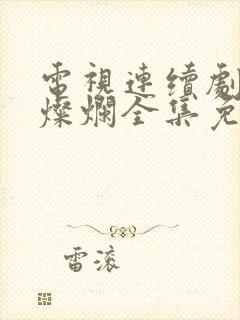 電視連續劇
燦爛全集免
雷滾